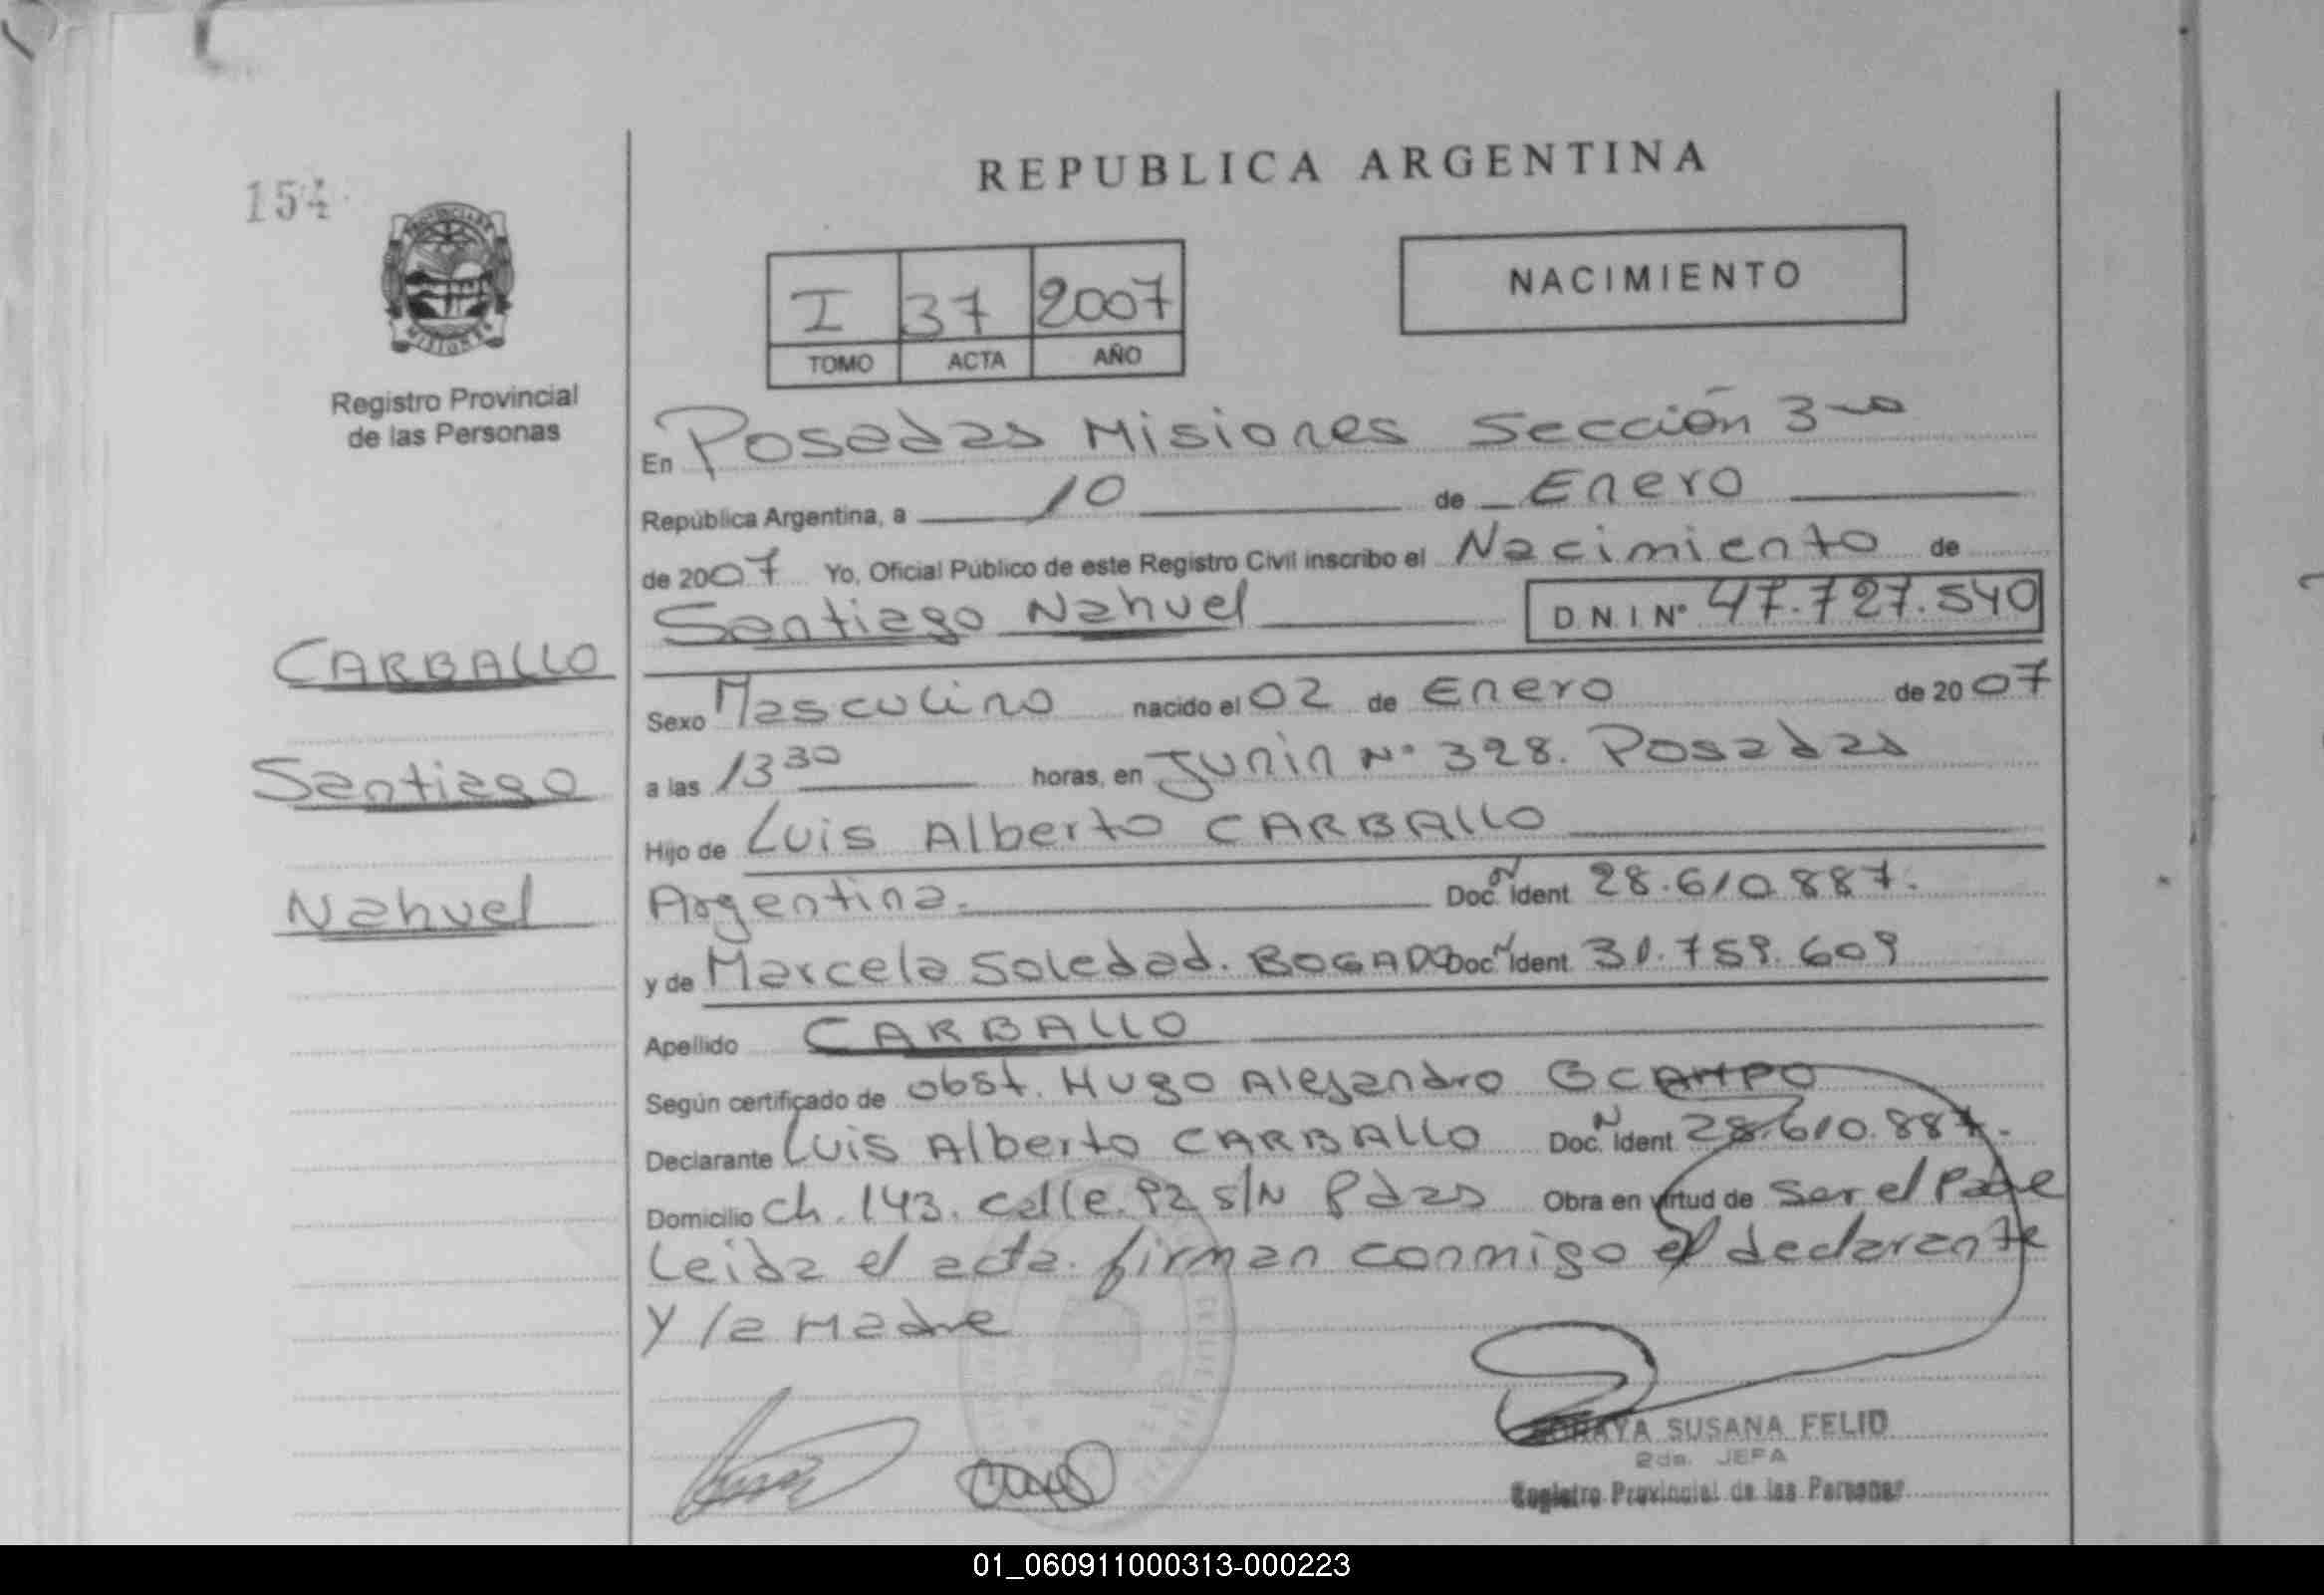 154
REPUBLICA ARGENTINA
NACIMIENTO
I 37 2007
TOMO ACTA AÑO
Registro Provincial
de las Personas
En Posadas Misiones Sección 3ra
República Argentina, a 10 de Enero
de 2007 Yo, Oficial Público de este Registro Civil inscribo el Nacimiento de
Santiago Nahuel D.N.I Nº 47.727.540
CARBALLO
Santiago
Nahuel
Sexo Masculino nacido el 02 de Enero de 2007
a las 13 30 horas, en Junin Nº 328. Posadas
Hijo de Luis Alberto CARBALLO
Argentina. Doc. N Ident 28.610.887.
y de Marcela Soledad. BOGADO Doc. N Ident 31.759.609
Apellido CARBALLO
Según certificado de obst. Hugo Alejandro OCAMPO
Declarante Luis Alberto CARBALLO Doc. N Ident 28.610.887.
Domicilio Ch. 143. calle. 92 s/N Pdas Obra en virtud de ser el Padre
Leida el acta. firman conmigo el declarante
y la Madre
SUSANA FELID
2da. JEFA
Registro Provincial de las Personas
01_060911000313-000223